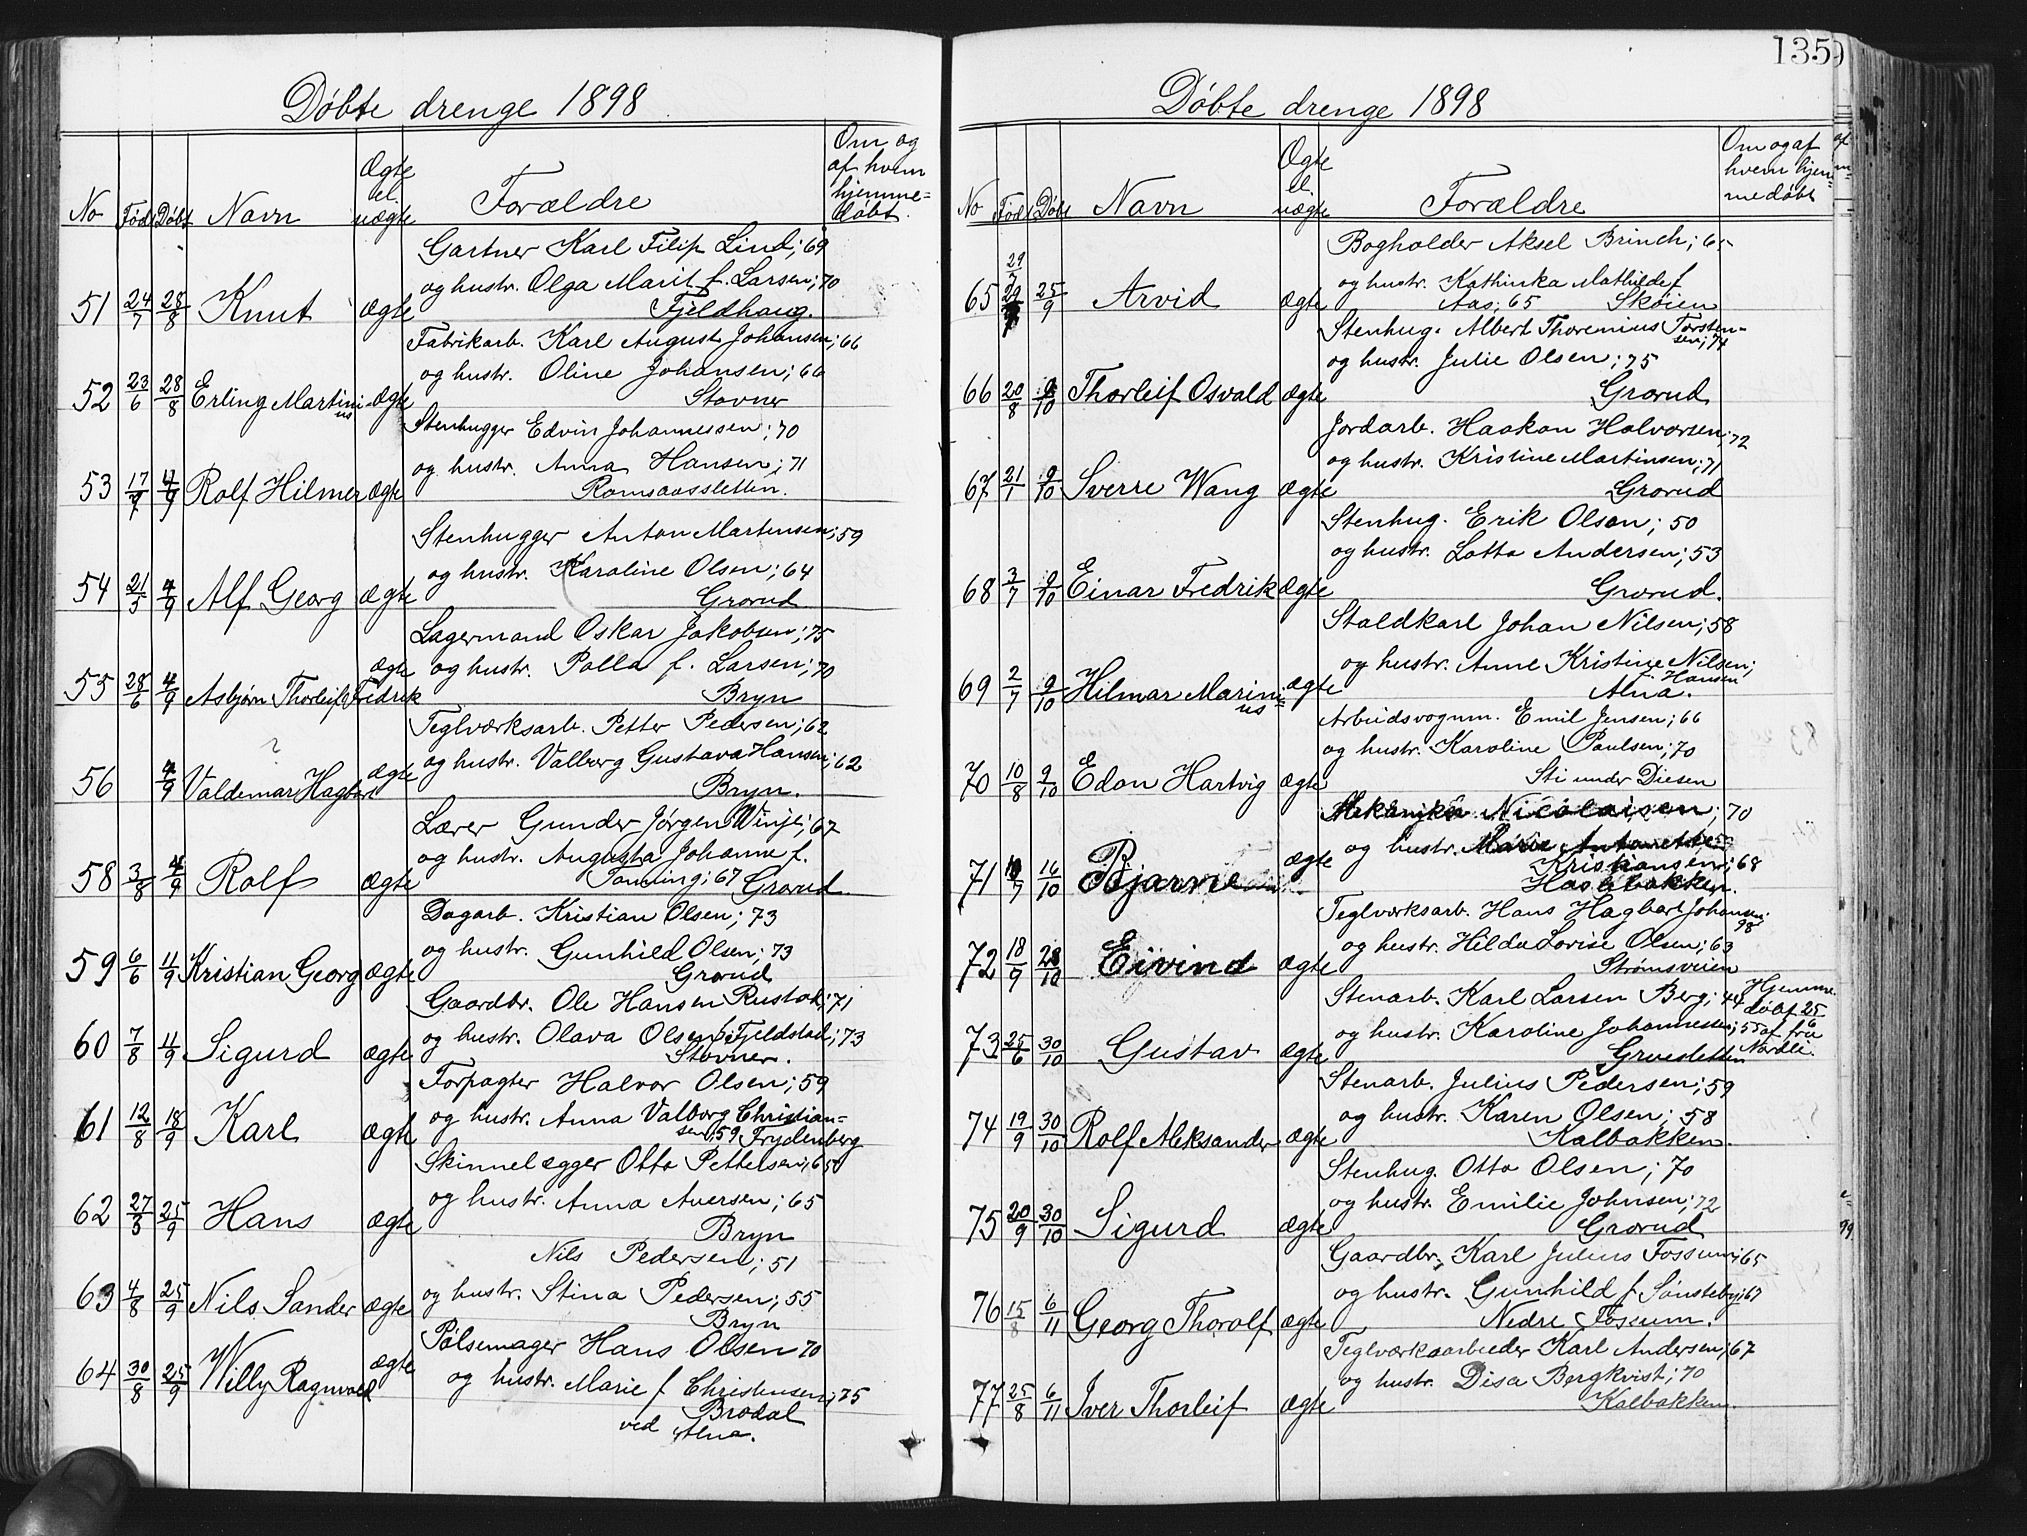 Døbte drenge 1898
No Født Døbt Navn Ægte el. uægte Forældre Om og af hvem hjemme=døbt.
Gartner Karl Filip Lind; 69
og hustr. Olga Marit f. Larsen; 70
51 24/7 28/8 Knut Ægte Fjeldhaug.
Fabrikarb. Karl August Johansen; 66
og hustr. Oline Johansen; 66
52 23/6 28/8 Erling Martinius Ægte Stovner
Stenhugger Edvin Johannessen; 70
og hustr. Anna Hansen; 71
53 17/7 4/9 Rolf Hilmer Ægte Romsaassletten.
Stenhugger Anton Martinsen; 59
og hustr. Karoline Olsen; 64
54 21/5 4/9 Alf Georg Ægte Grorud
Lagermand Oskar Jakobsen; 75
og hustr. Palla f. Larsen; 70
55 28/6 4/9 Asbjørn Thorleif Fridrik Ægte Bryn
Teglværksarb. Petter Pedersen; 62
og hustr. Valborg Gustava Hansen; 62
56 ? 4/9 Valdemar Hagbart Ægte Bryn.
Lærer Gunder Jørgen Winje; 67
og hustr. Augusta Johanne f.
Tønning; 67 Grorud
58 3/8 4/9 Rolf Ægte
Dagarb. Kristian Olsen; 73
og hustr. Gunhild Olsen; 73
59 6/6 11/9 Kristian Georg Ægte Grorud
Gaardbr. Ole Hansen Rustad; 71
og hustr. Olava Olsen f. Fjeldstad; 73
60 7/8 4/9 Sigurd Ægte Stovner.
Forpagter Halvor Olsen; 59
og hustr. Anna Valborg Christian=
sen; 59 Frydenberg
61 12/8 18/9 Karl Ægte
Skinnelægger Otto Pettersen; 65
og hustr. Anna Auersen; 65
62 27/3 25/9 Hans Ægte Bryn
Nils Pedersen; 51
og hustr. Stina Pedersen; 55
63 4/8 25/9 Nils Sander Ægte Bryn
Pølsemager Hans Olsen 70
og hustr. Marie f Christensen; 75
64 30/8 25/9 Willy Ragnvald Ægte Brodal
ved Alna.
135
Døbte drenge 1898
No Født Døbt Navn Ægte el. uægte Forældre Om og af hvem hjemmedøbt
Bogholder Aksel Brinch; 65
og hustr. Kathinka Mathilde f
65 29/7 25/9 Arvid Ægte Aas; 65 Skøien
Stenhug. Albert Thorenius Torsten=
sen; 74
og hustr. Julie Olsen; 75
66 20/8 9/10 Thorleif Osvald Ægte Grorud
Jordarb. Haakon Halvorsen; 72
og hustr. Kristine Martinsen; 71
67 21/1 9/10 Sverre Wang Ægte Grorud
Stenhug. Erik Olsen; 50
og hustr. Lotta Andersen; 53
68 3/7 9/10 Einar Fredrik Ægte Grorud.
Staldkarl Johan Nilsen; 58
og hustr. Anne Kristine Nilsen;
f. Hansen
69 2/7 9/10 Hilmar Marinius Ægte Alna.
Arbeidsvognm. Emil Jensen; 66
og hustr. Karoline Paulsen; 70
70 10/8 9/10 Edon Hartvig Ægte Sti under Diesen
Nicolaisen; 70
og hustr. Marie Antonette
Kristiansen; 68
71 16/10 Bjarne Ægte Haslebakken.
Teglværksarb. Hans Hagbart Johansen
98
og hustr. Hilda Lovise Olsen; 63
72 18/9 28/10 Eivind Ægte Strømsveien
Stenarb. Karl Larsen Berg; 44 Hjemme
døbt 25/6
og hustr. Karoline Johannessen; 55 af fru
73 25/6 30/10 Gustav Ægte Grueslatten Nordli.
Stenarb. Julius Pedersen; 59
og hustr. Karen Olsen; 58
74 19/9 30/10 Rolf Aleksander Ægte Kalbakken.
Stenhug. Otto Olsen; 70
og hustr. Emilie Johnsen; 72
75 20/9 30/10 Sigurd Ægte Grorud
Gaardbr. Karl Julius Fossum; 65
og hustr. Gunhild f. Sønsteby; 67
76 15/8 6/11 Georg Thorolf Ægte Nedre Fossum.
Teglværksarbeider Karl Andersen; 67
og hustr. Disa Bergkvist; 70
77 25/8 6/11 Iver Thorleif Ægte Kalbakken.